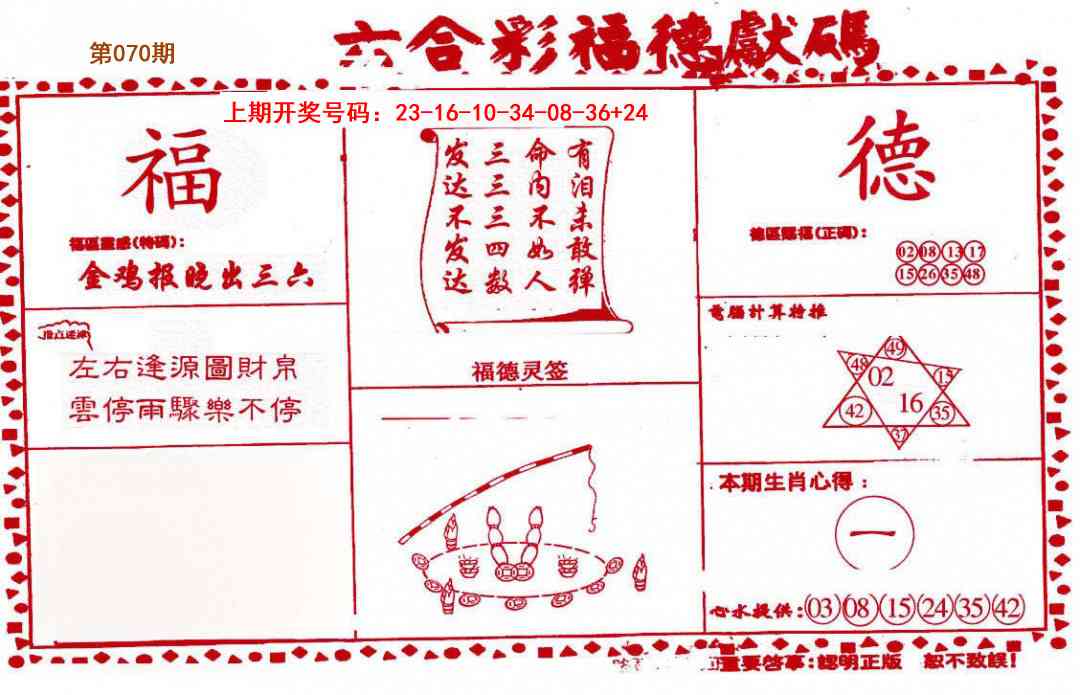 第070期
六合彩福德獻碼
上期开奖号码：23-16-10-34-08-36+24
福
福區靈感(特碼)：
金鸡报晚出三六
左右逢源圖財帛
雲停雨驟樂不停
有泪未敢弹
命内不如人
三三三四数
发达不发达
福德灵签
德
德區賜福(正碼)：
02 08 13 17
15 26 35 48
電腦計算特推
49
48 02 15
42 16 35
37
本期生肖心得：
一
心水提供:03 08 15 24 35 42
重要啓事:認明正版 恕不致誤!